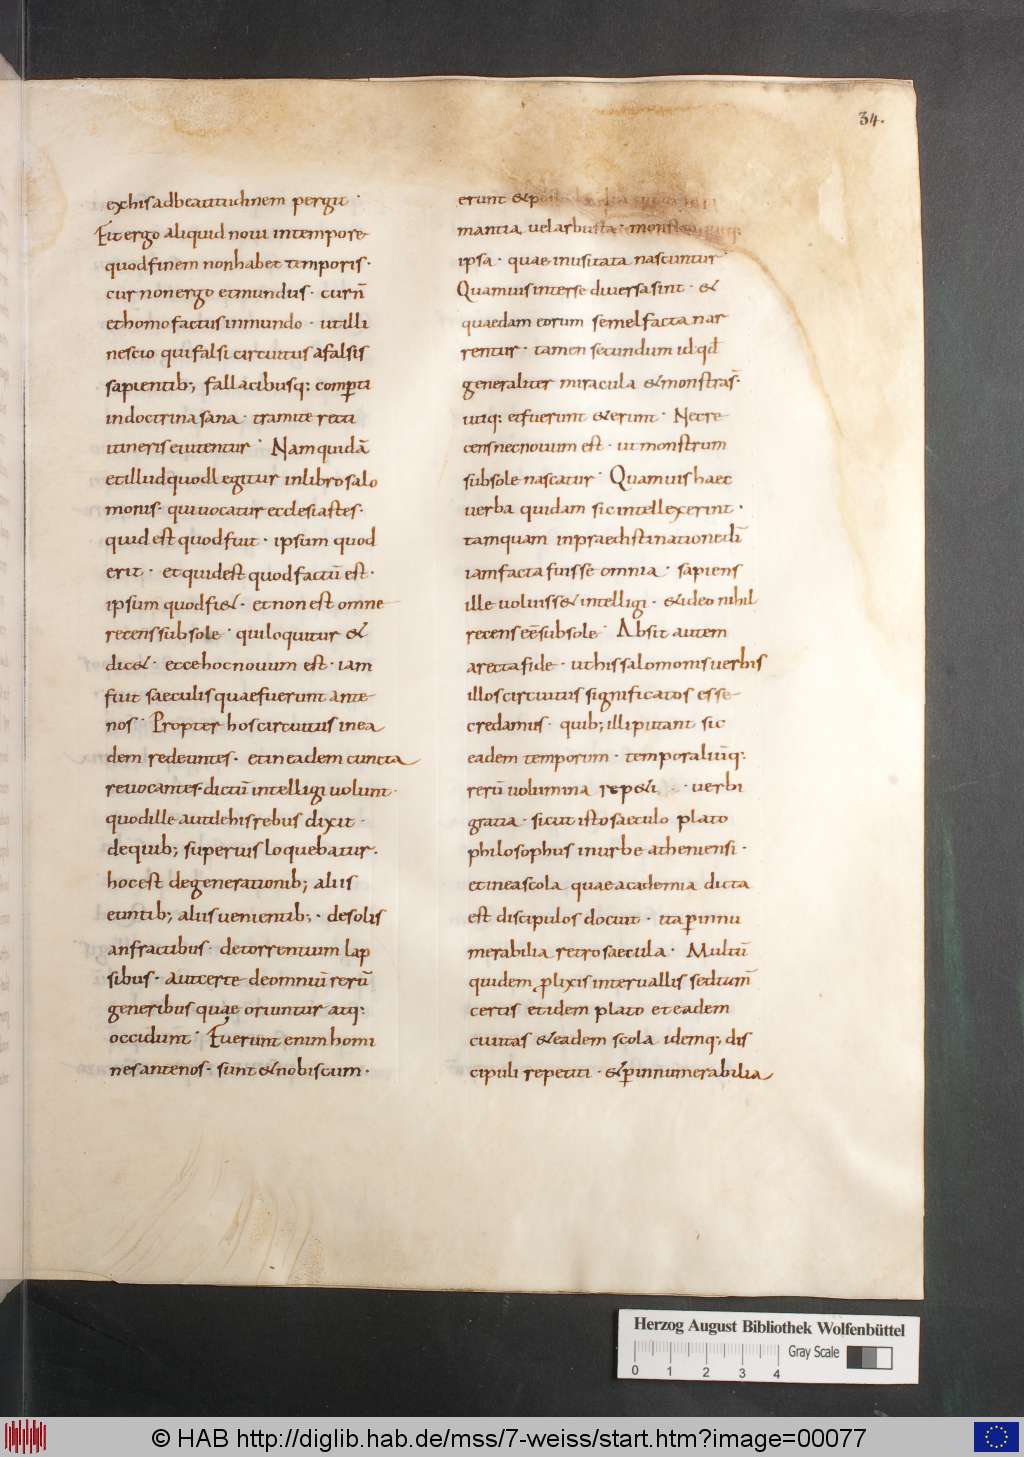 34.
ex his ad beatitudinem pergit ·
Fit ergo aliquid novi in tempore
quod finem non habet temporis ·
cur non ergo et mundus · cur n̄
et homo factus in mundo · ut illi
nescio qui falsi circuitus a falsis
sapientib; fallacibusq: comp̱ti
in doctrina sana · tramite recti
itineris evitentur · Nam quidā
et illud quod legitur in libro salo
monis · qui vocatur ecclesiastes ·
quid est quod fuit · ipsum quod
erit · et quid est quod factū est ·
ipsum quod fi& · et non est omne
recens sub sole · qui loquitur &
dic& · ecce hoc novum est · iam
fuit saeculis quae fuerunt ante
nos · Propter hos circuitus in ea
dem redeuntes · et in eadem cuncta
revocantes · dictū intelligi volunt ·
quod ille aut de his rebus dixit ·
de quib; superius loquebatur ·
hoc est de generationib; aliis
euntib; aliis venientib; · de solis
anfractibus · de torrentium lap
sibus · aut certe de omniū rerū
generibus quae oriuntur atq:
occidunt · Fuerunt enim homi
nes ante nos · sunt & nobiscum ·
erunt &
mantia vel arbusta ·
ipsa · quae inusitata nascuntur ·
Quamvis inter se diversa sint · &
quaedam eorum semel facta nar
rentur · tamen secundum id qđ
generaliter miracula & monstra s̄ ·
utiq: et fuerunt & erunt · Nec re
cens nec novum est · ut monstrum
sub sole nascatur · Quamvis haec
verba quidam sic intellexerint ·
tamquam in praedistinatione dī
iam facta fuisse omnia · sapiens
ille voluiss& intelligi · & ideo nihil
recens eē sub sole · Absit autem
a recta fide · ut his salomonis verbis
illos circuitus significatos esse
credamus · quib; illi putant sic
eadem temporum · temporaliūq:
rerū volumina rep&i · verbi
gratia · sicut isto saeculo plato
philosophus in urbe atheniensi ·
et in ea scola quae academia dicta
est discipulos docuit · ita p̱ innu
merabilia retro saecula · Multū
quidem ꝓlixis intervallis sed tam̄
certis et idem plato et eadem
civitas & eadem scola idemq; dis
cipuli repetiti · & p̱ innumerabilia
Herzog August Bibliothek Wolfenbüttel
Gray Scale
0 1 2 3 4
© HAB http://diglib.hab.de/mss/7-weiss/start.htm?image=00077